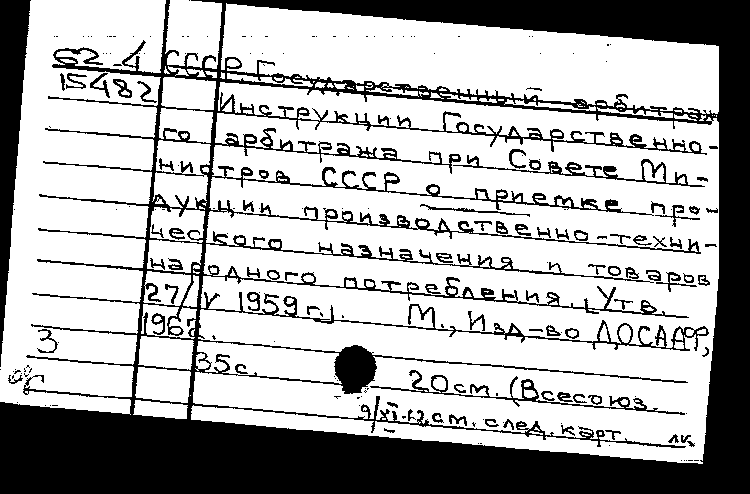 62-4 СССР. Государственный арбитраж
15482 Инструкции Государственно-
го арбитража при Совете Ми-
нистров СССР о приемке про-
дукции производственно-техни-
ческого назначения и товаров
народного потребления. [Утв.
27/IV 1959 г.]. М., Изд-во ДОСААФ,
1962.
3 35 с. 20 см. (Всесоюз.
9/XI-62 см. след. карт. лк